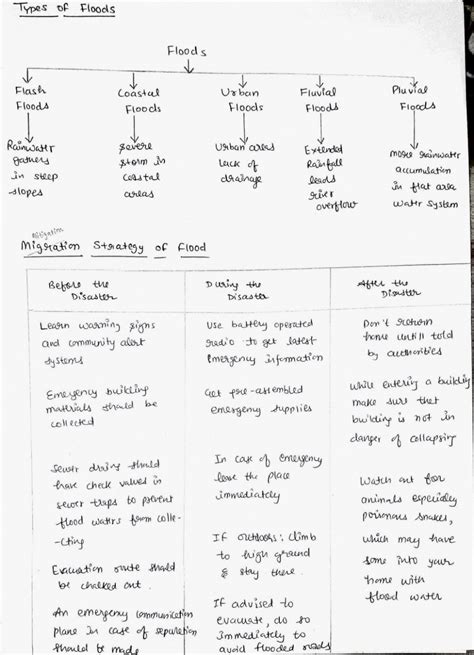 Types of Floods
Floods
Flash
Floods
Coastal
Floods
Urban
Floods
Fluvial
Floods
Pluvial
Floods
Rainwater
gathers
in steep
slopes
Severe
storm in
coastal
areas
Urban areas
lack of
drainage
Extended
Rainfall
leads
river
overflow
more rainwater
accumulation
in flat area
water system
mitigation
Migration Strategy of Flood
Before the
Disaster
During the
Disaster
After the
Disaster
Learn warning signs
and community alert
systems
Emergency building
materials should be
collected
Sewer drains should
have check values in
sewer traps to prevent
flood waters form colle-
-cting
Evacuation route should
be chalked out.
An emergency communication
plane in case of separation
should be made
Use battery operated
radio to get latest
Emergency information
Get pre-assembled
emergency supplies
In case of emergency
leave the place
immediately
If outdoors: climb
to high ground
& stay there.
If advised to
evacuate, do so
immediately to
avoid flooded roads
Don't return
home untill told
by authorities
While entering a building
make sure that
building is not in
danger of collapsing
Watch out for
animals especially
poisonous snakes,
which may have
come into your
home with
flood water